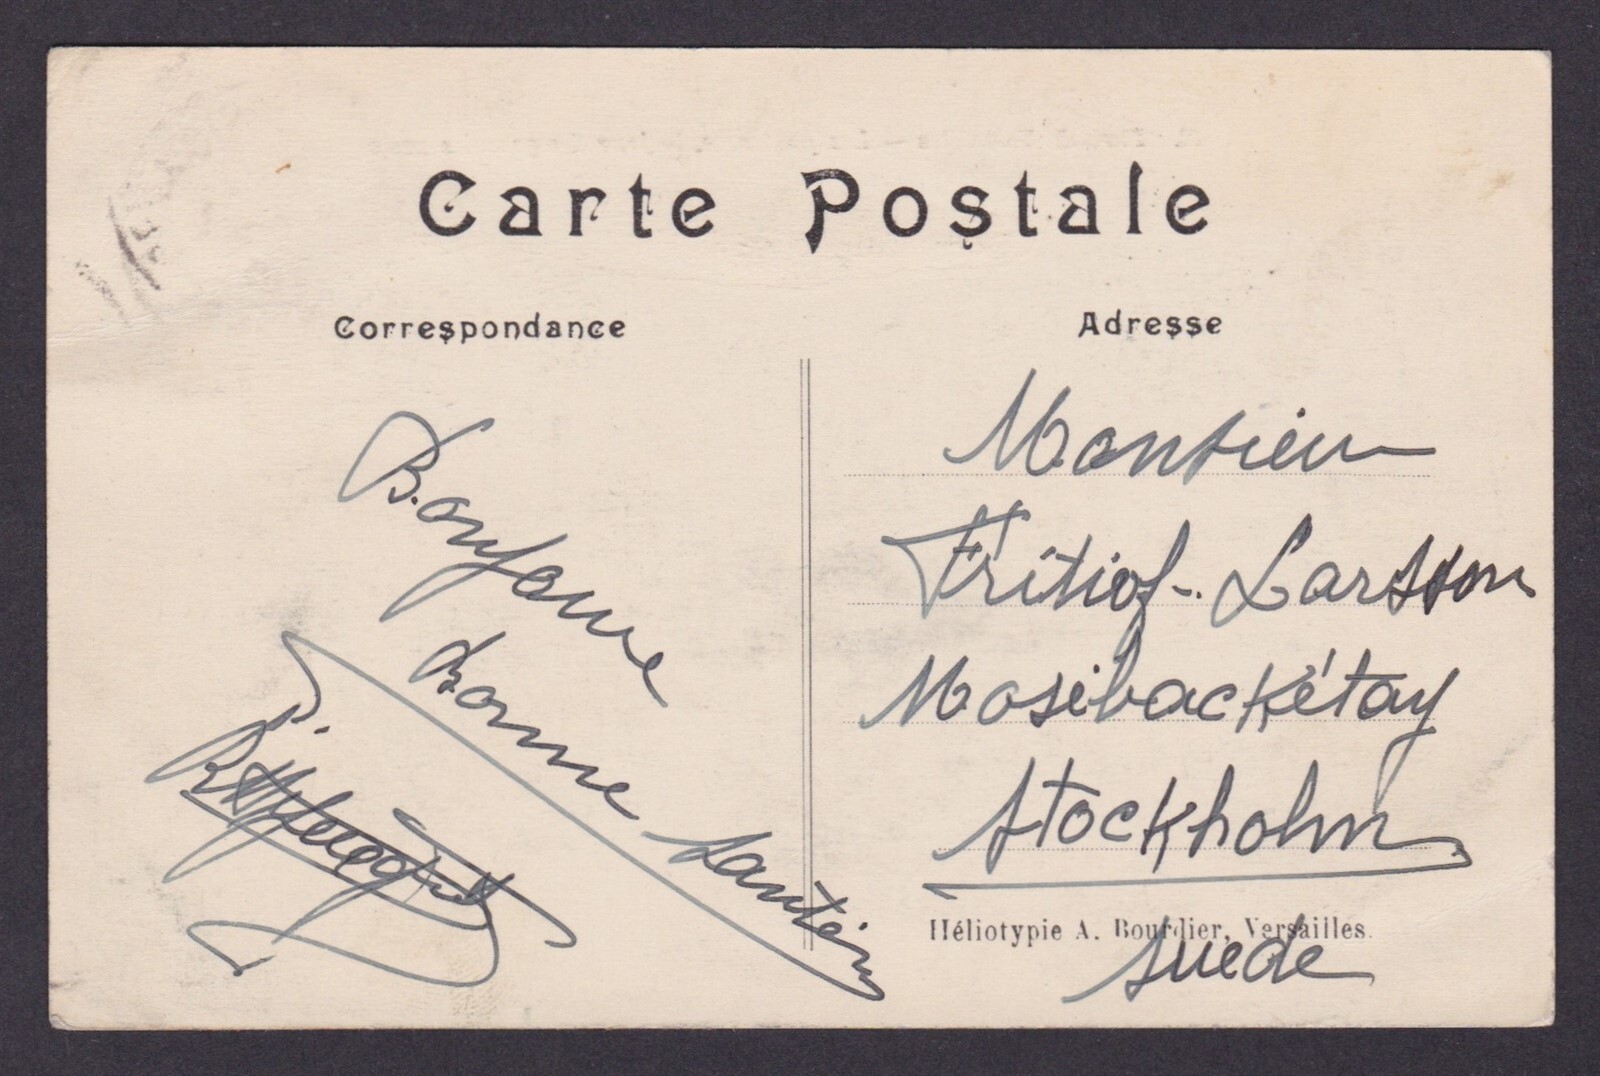 Carte Postale
Correspondance
Adresse
Bonjour
bonne santée
Monsieur
Fritiof Larsson
Mosebackétay
Stockholm
Suede
Héliotypie A. Bourdier, Versailles.